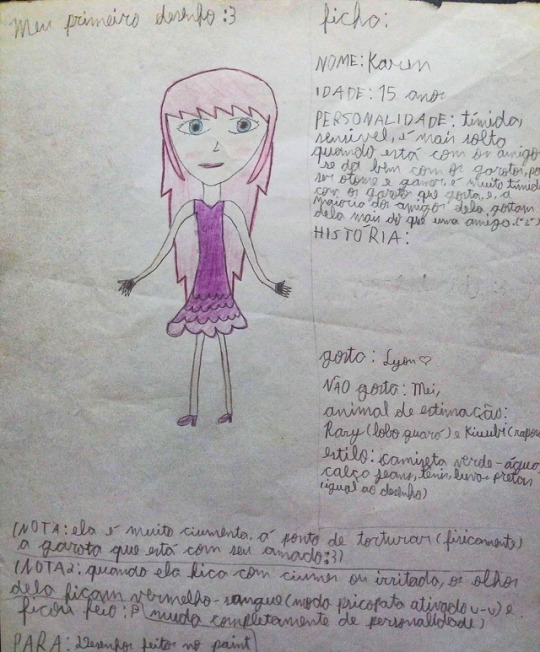 Meu primeiro desenho :3
ficha:
NOME: Karen
IDADE: 15 anos
PERSONALIDADE: tímida,
sensível, é mais solta
quando está com os amigos
se dá bem com os garotos, por
ser otome e gamer, é muito tímida
com os garoto que gosta, e, a
maioria dos amigos dela, gostam
dela mais do que uma amiga.
HISTÓRIA:
gosta: Lyon ♡
NÃO gosta: Mei,
animal de estimação:
Rary (lobo guará) e Kiuubi (raposa
estilo: camiseta verde-água,
calça jeans, tenis, luvas pretas
(igual ao desenho)
(NOTA: ela é muito ciumenta, á ponto de torturar (fisicamente)
a garota que está com seu amado :3)
(NOTA2: quando ela fica com ciumes ou irritada, os olhos
dela ficam vermelho-sangue (modo psicopata ativado u-u) e
ficou feio :p muda completamente de personalidade)
PARA: Desenhos feitos no paint